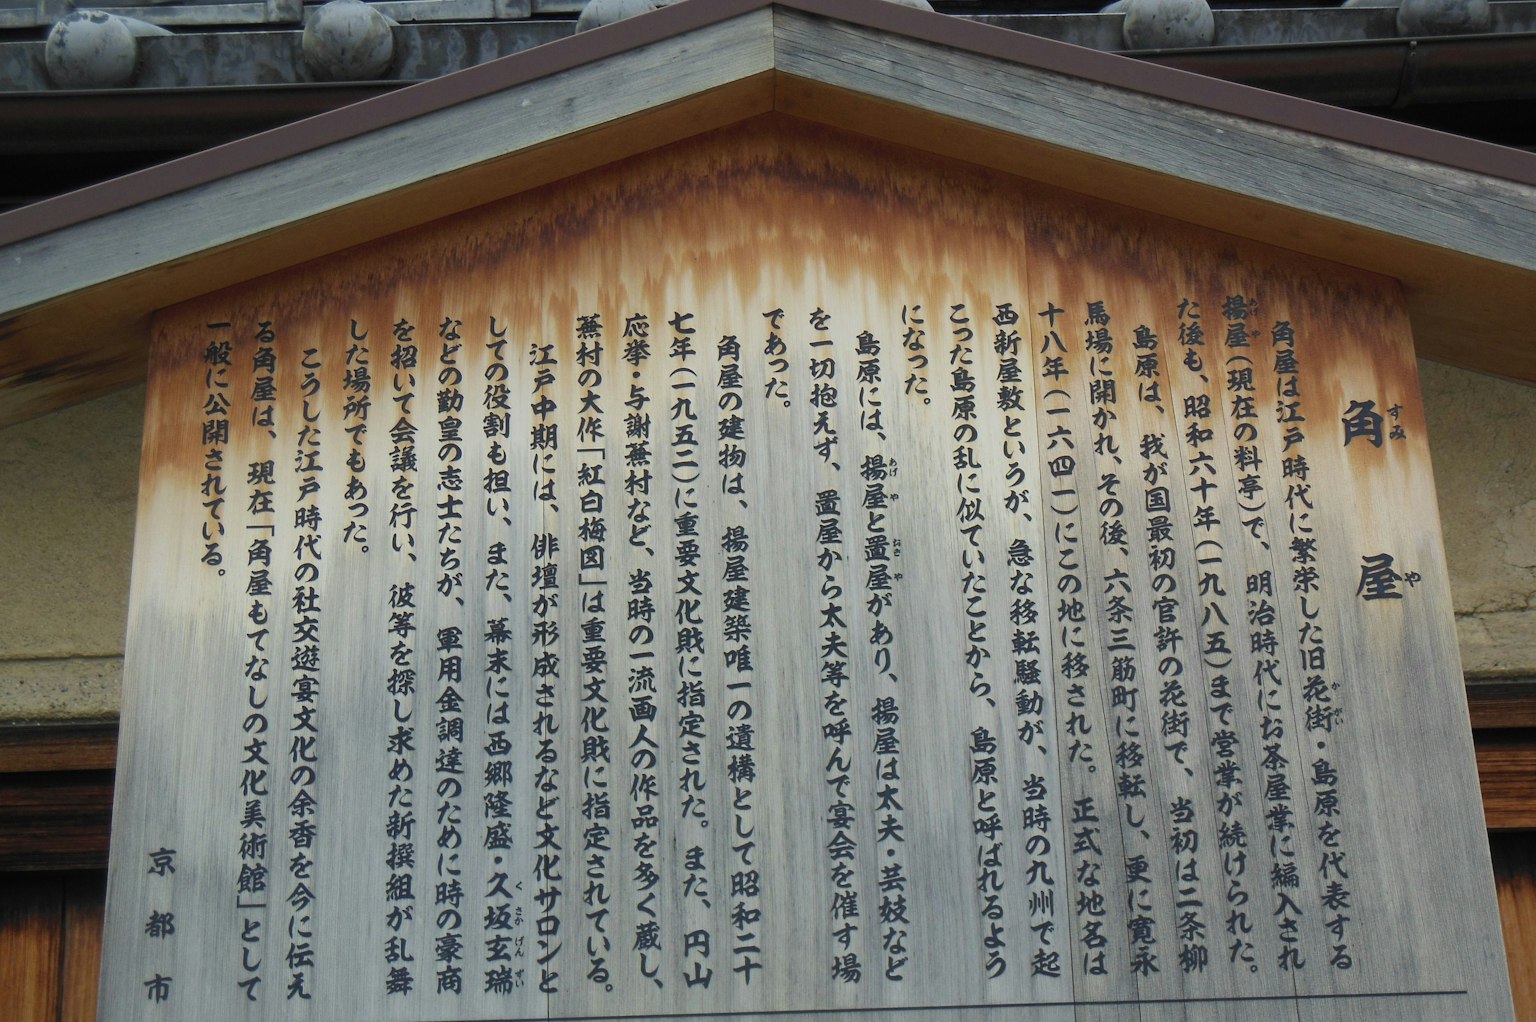 角屋
すみや
角屋は江戸時代に繁栄した旧花街・島原を代表する
かがい
揚屋（現在の料亭）で、明治時代にお茶屋業に編入され
あげや
た後も、昭和六十年（一九八五）まで営業が続けられた。
島原は、我が国最初の官許の花街で、当初は二条柳
馬場に開かれ、その後、六条三筋町に移転し、更に寛永
十八年（一六四一）にこの地に移された。正式な地名は
西新屋敷というが、急な移転騒動が、当時の九州で起
こった島原の乱に似ていたことから、島原と呼ばれるよう
になった。
島原には、揚屋と置屋があり、揚屋は太夫・芸妓など
あげや
おきや
を一切抱えず、置屋から太夫等を呼んで宴会を催す場
であった。
角屋の建物は、揚屋建築唯一の遺構として昭和二十
七年（一九五二）に重要文化財に指定された。また、円山
応挙・与謝蕪村など、当時の一流画人の作品を多く蔵し、
蕪村の大作「紅白梅図」は重要文化財に指定されている。
江戸中期には、俳壇が形成されるなど文化サロンと
しての役割も担い、また、幕末には西郷隆盛・久坂玄瑞
くさかげんずい
などの勤皇の志士たちが、軍用金調達のために時の豪商
を招いて会議を行い、彼等を探し求めた新撰組が乱舞
した場所でもあった。
こうした江戸時代の社交遊宴文化の余香を今に伝え
る角屋は、現在「角屋もてなしの文化美術館」として
一般に公開されている。
京都市